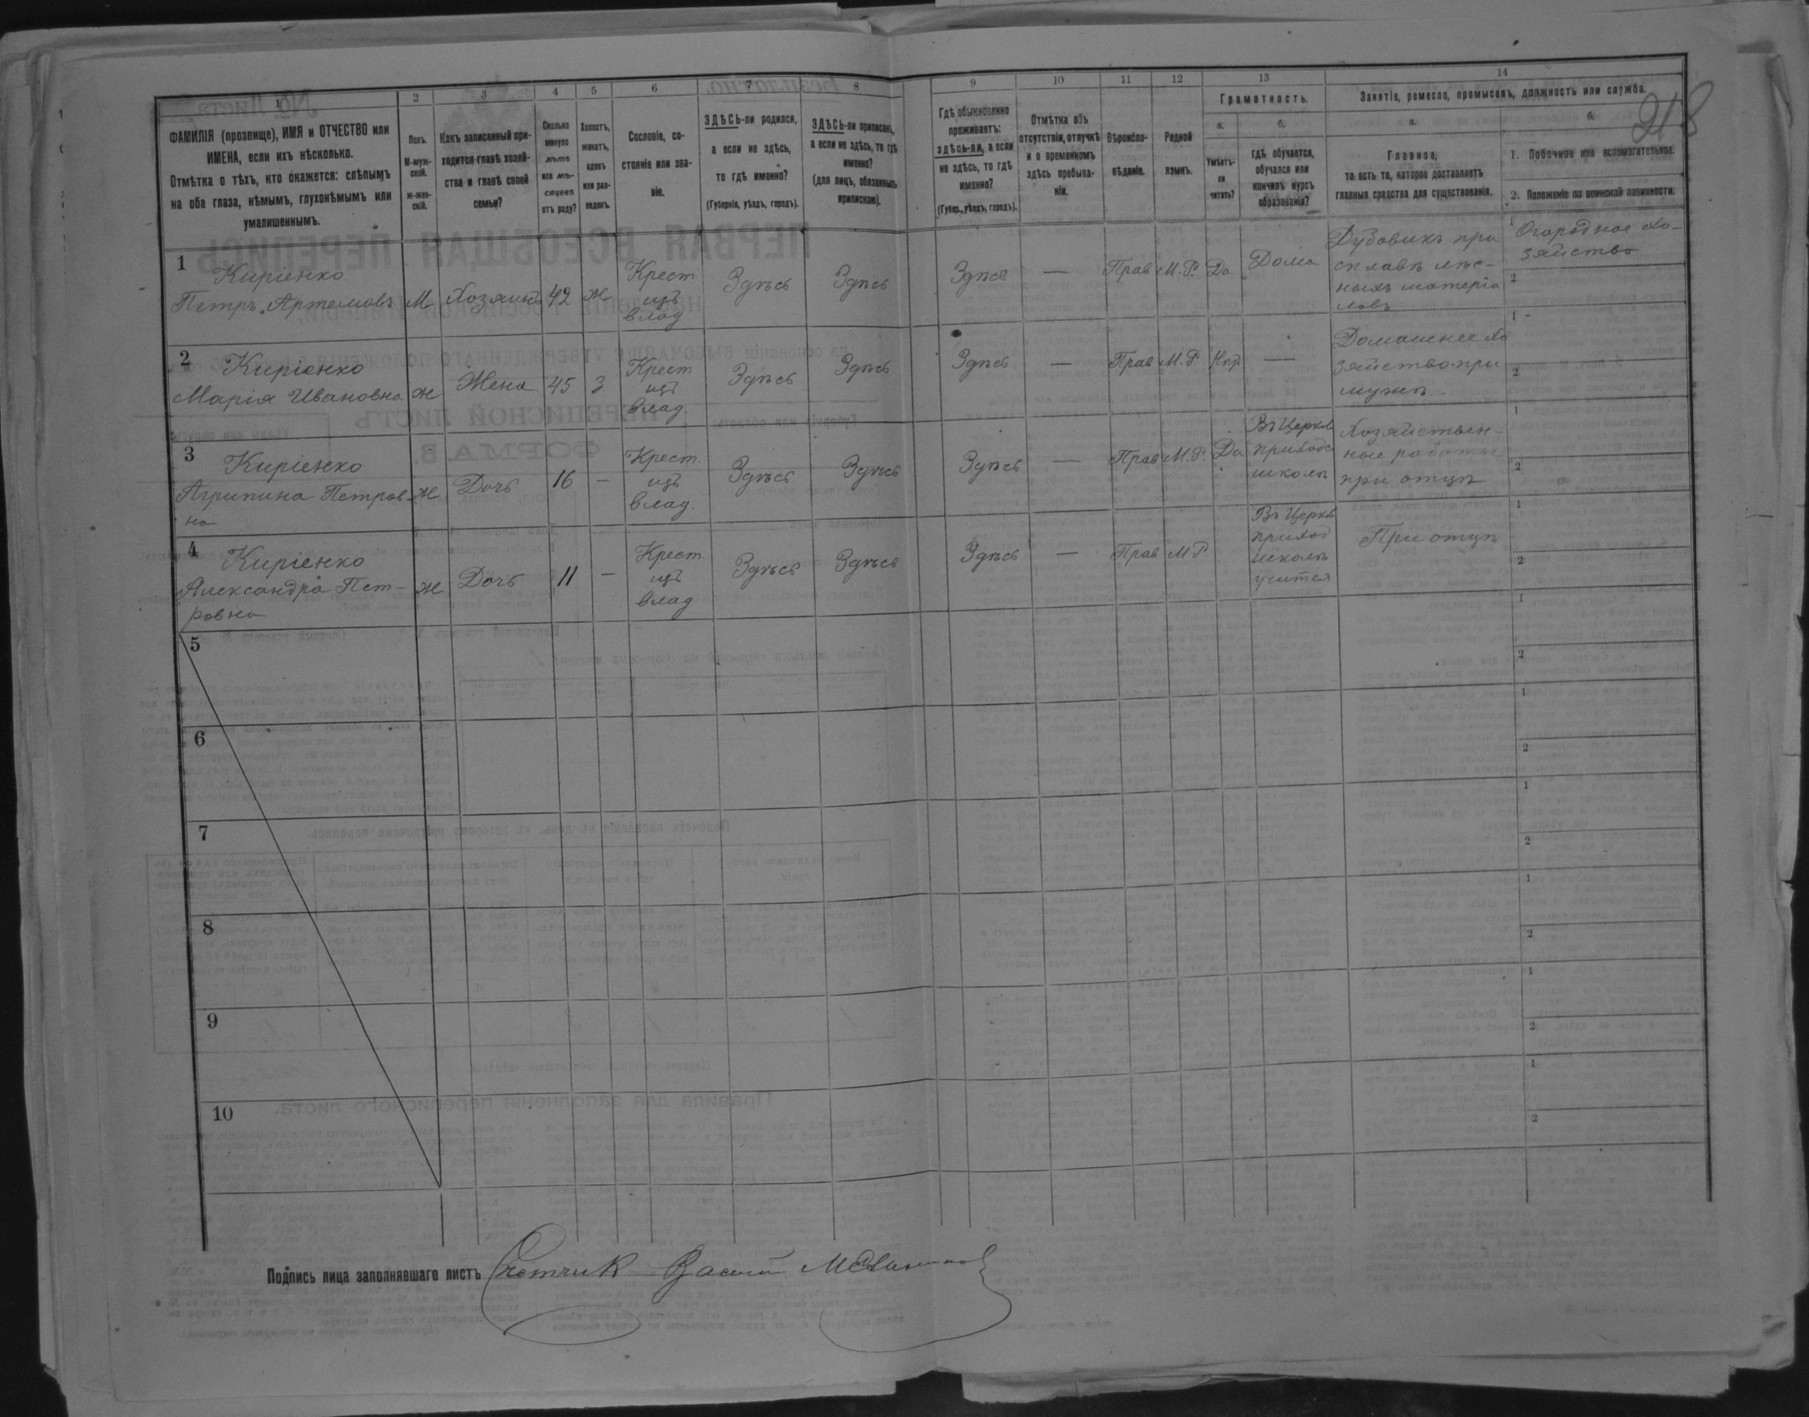 218
1
2
3
4
5
6
7
8
9
10
11
12
13
14
ФАМИЛІЯ (прозвище), ИМЯ и ОТЧЕСТВО или
ИМЕНА, если ихъ нѣсколько.
Отмѣтка о тѣхъ, кто окажется: слѣпымъ
на оба глаза, нѣмымъ, глухонѣмымъ или
умалишеннымъ.
Полъ.
М-муж-
ской.
Ж-жен-
скій.
Какъ записанный при-
ходится главѣ хозяй-
ства и главѣ своей
семьи?
Сколько
минуло
лѣтъ
или мѣ-
сяцевъ
отъ роду?
Холостъ,
женатъ,
вдовъ
или раз-
веденъ.
Сословіе, со-
стояніе или зва-
ніе.
ЗДѢСЬ-ли родился,
а если не здѣсь,
то гдѣ именно?
(Губернія, уѣздъ, городъ).
ЗДѢСЬ-ли приписанъ,
а если не здѣсь, то гдѣ
именно?
(для лицъ, обязанныхъ
припискою).
Гдѣ обыкновенно
проживаетъ:
здѣсь-ли, а если
не здѣсь, то гдѣ
именно?
(Губер., уѣздъ, городъ).
Отмѣтка объ
отсутствіи, отлучкѣ
и о временномъ
здѣсь пребыва-
ніи.
Вѣроиспо-
вѣданіе.
Родной
языкъ.
Грамотность.
а.
Умѣетъ-
ли
читать?
б.
Гдѣ обучается,
обучался или
кончилъ курсъ
образованія?
Занятіе, ремесло, промыселъ, должность или служба.
а.
Главное,
то есть то, которое доставляетъ
главныя средства для существованія.
б.
1. Побочное или вспомогательное.
2. Положеніе по воинской повинности.
1
Киріенко
Петръ Артемовъ
М
Хозяинъ
42
Ж
Крест
изъ
влад
Здѣсь
Здѣсь
Здѣсь
—
Прав
М.Р.
Да
Дома
Дубовикъ при
сплавѣ лѣс-
ныхъ матеріа
ловъ
1 Огородное хо-
зяйство
2
2
Киріенко
Марія Ивановна
Ж
Жена
45
З
Крест
изъ
влад.
Здѣсь
Здѣсь
Здѣсь
—
Прав
М.Р.
—
Домашнее хо
зяйство при
мужѣ
1 -
2
3
Киріенко
Агрипина Петров-
на
Ж
Дочь
16
—
Крест.
изъ
влад.
Здѣсь
Здѣсь
Здѣсь
—
Прав
М.Р.
Да
Въ Церков
приходс
школѣ
Хозяйствен-
ные работы
при отцѣ
1
2
4
Киріенко
Александра Пет-
ровна
Ж
Дочь
11
—
Крест.
изъ
влад
Здѣсь
Здѣсь
Здѣсь
—
Прав
М.Р
Въ Церков
приход
школѣ
учится
При отцѣ
1
2
5
1
2
6
1
2
7
1
2
8
1
2
9
1
2
10
1
2
Подпись лица заполнявшаго листъ Счетчик